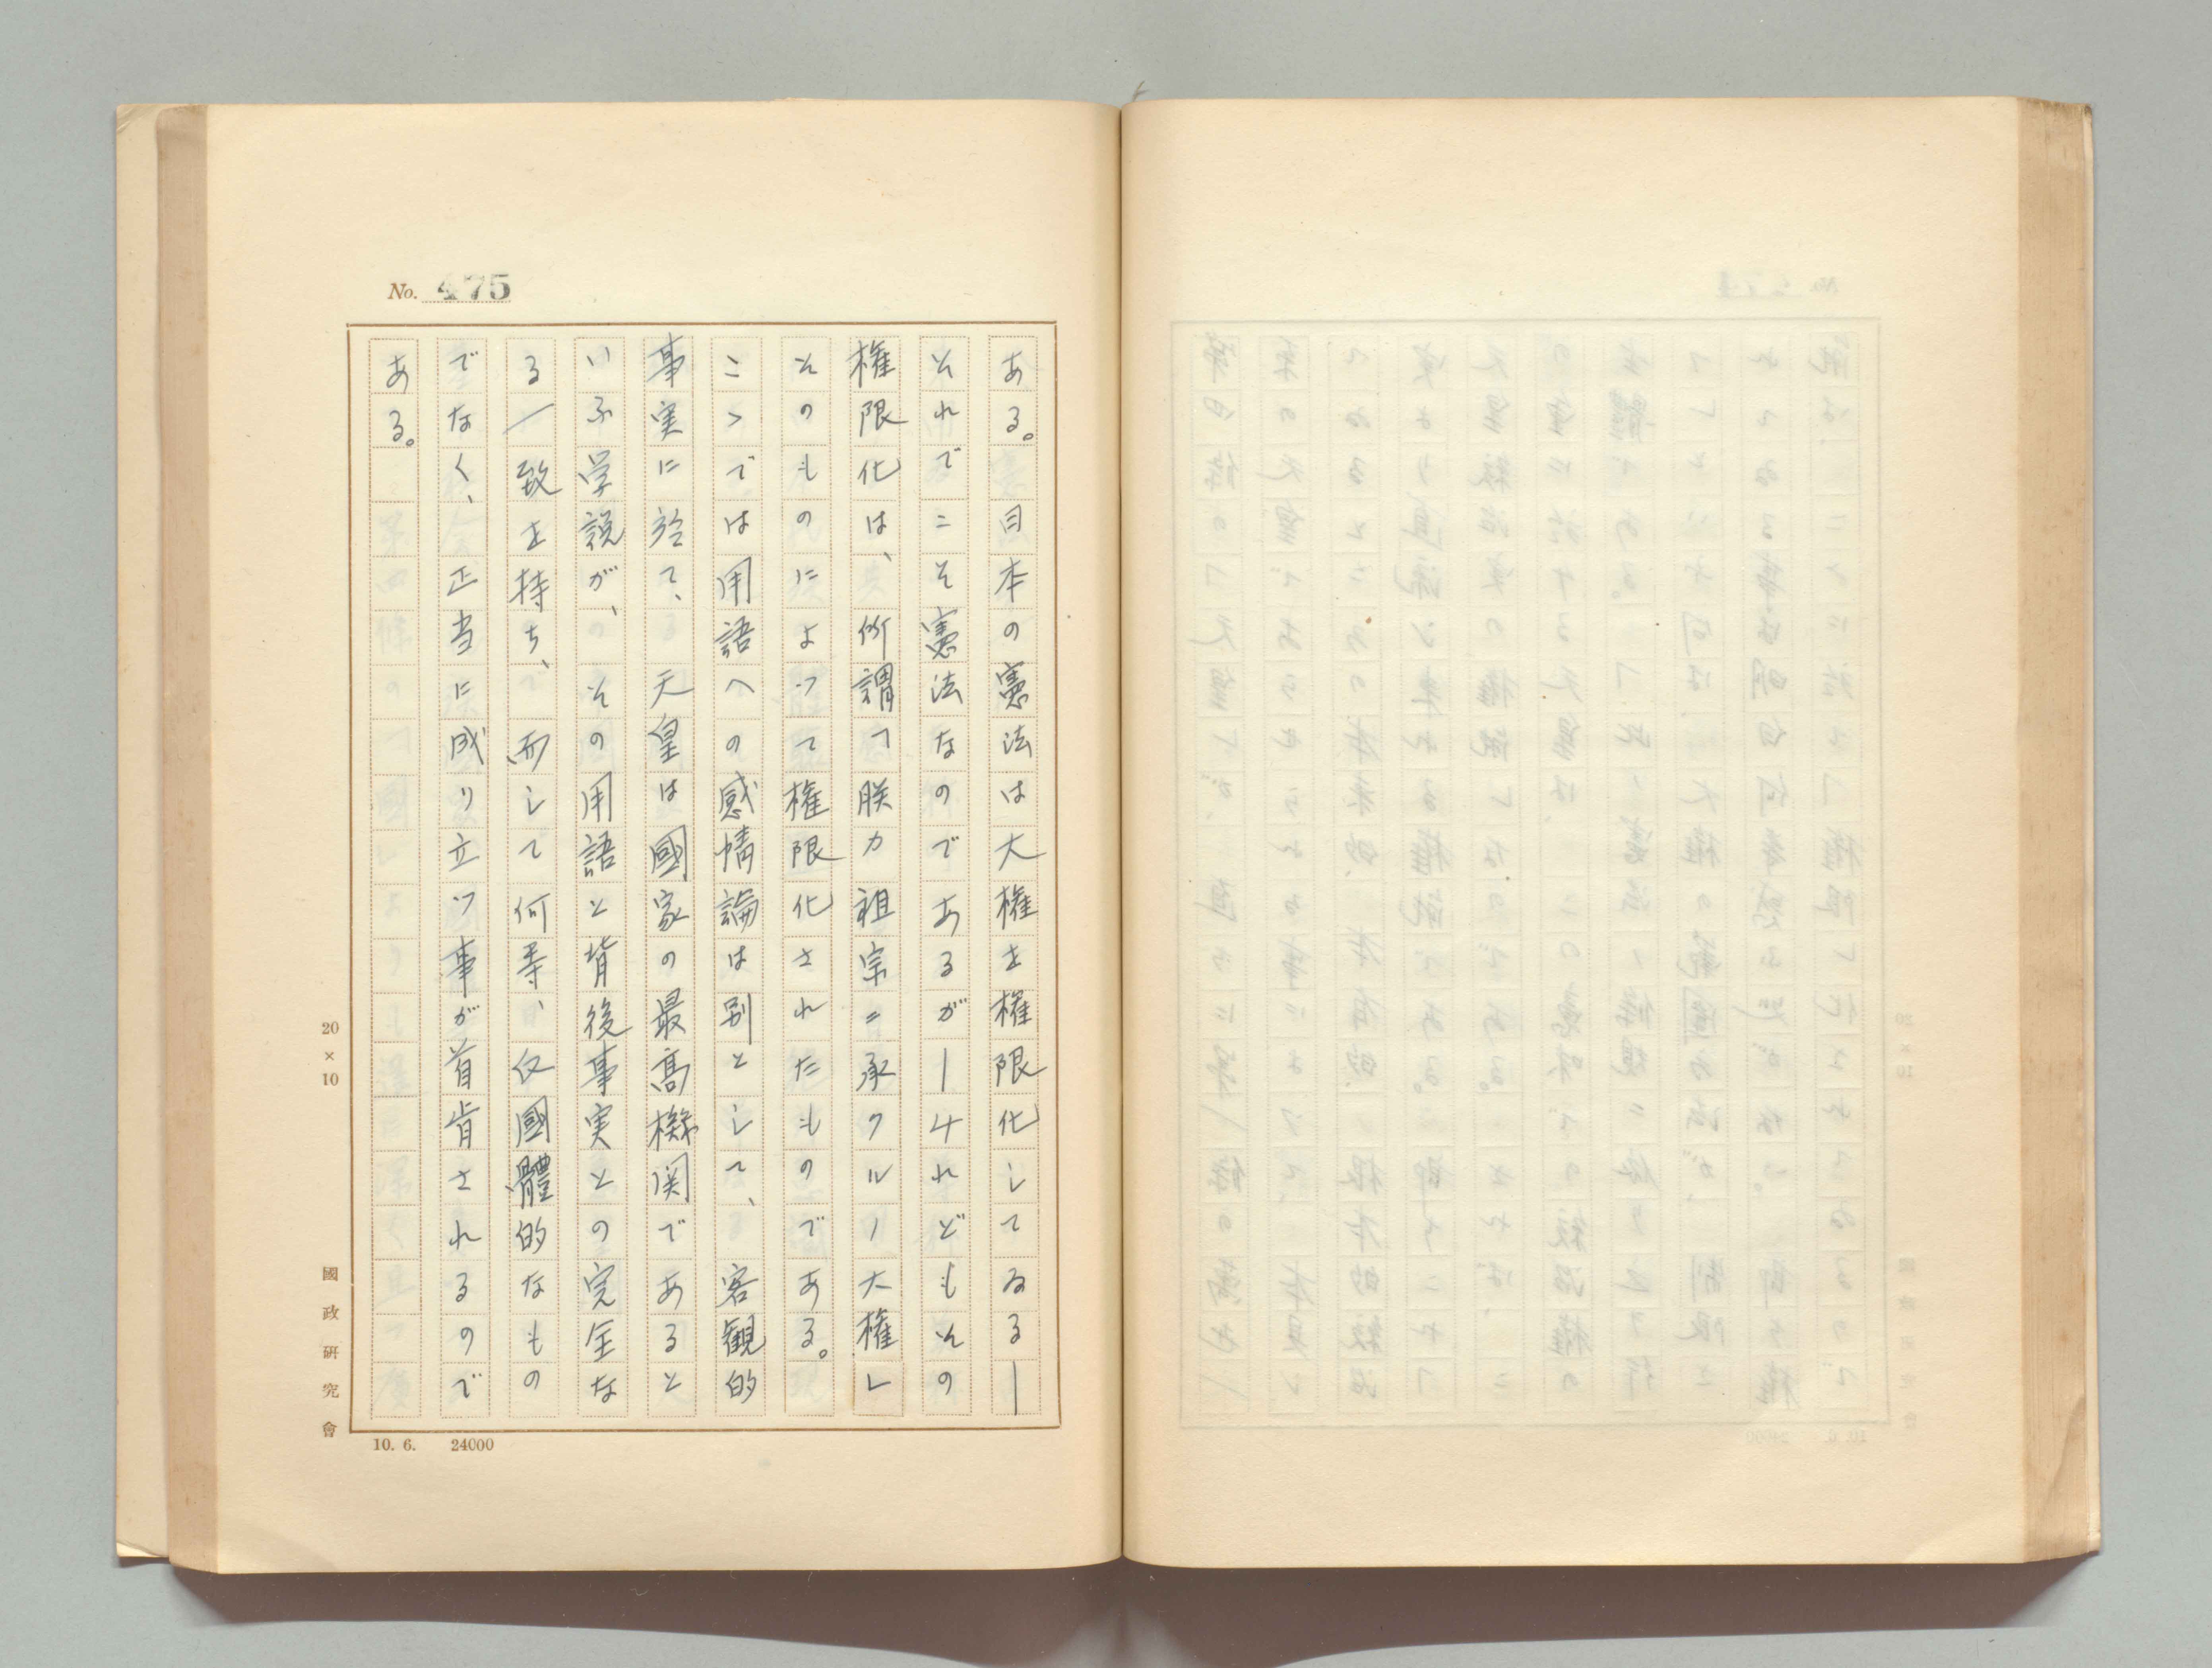 No. 475
ある。目本の憲法は大権を権限化してゐる―
それでこそ憲法なのであるが―けれどもその
権限化は、所謂「朕カ祖宗ニ承クルノ大権」
そのものによつて権限化されたものである。
こゝでは用語への感情論は別として、客観的
事実に於て、天皇は國家の最高機関であると
いふ学説が、その用語と背後事実との完全な
る一致を持ち、而して何等、仅國體的なもの
でなく、正当に成り立つ事が首肯されるので
ある。
20×10
國政研究會
10. 6. 24000